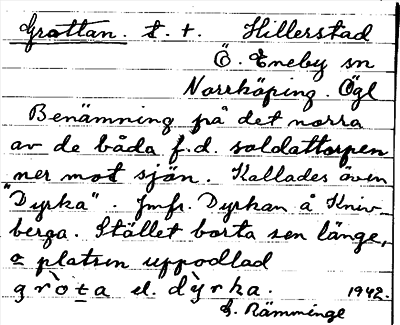 Grottan. t. t. Hillerstad
Ö. Eneby sn
Norrköping. Ögl
Benämning på det norra
av de båda f.d. soldattorpen
ner mot sjön. Kallades även
"Dyrka". Jmfr. Dyrkan å Kniv-
berga. Stället borta sen länge,
o platsen uppodlad
gròta el. dỳrka. 1942.
G. Rämminge